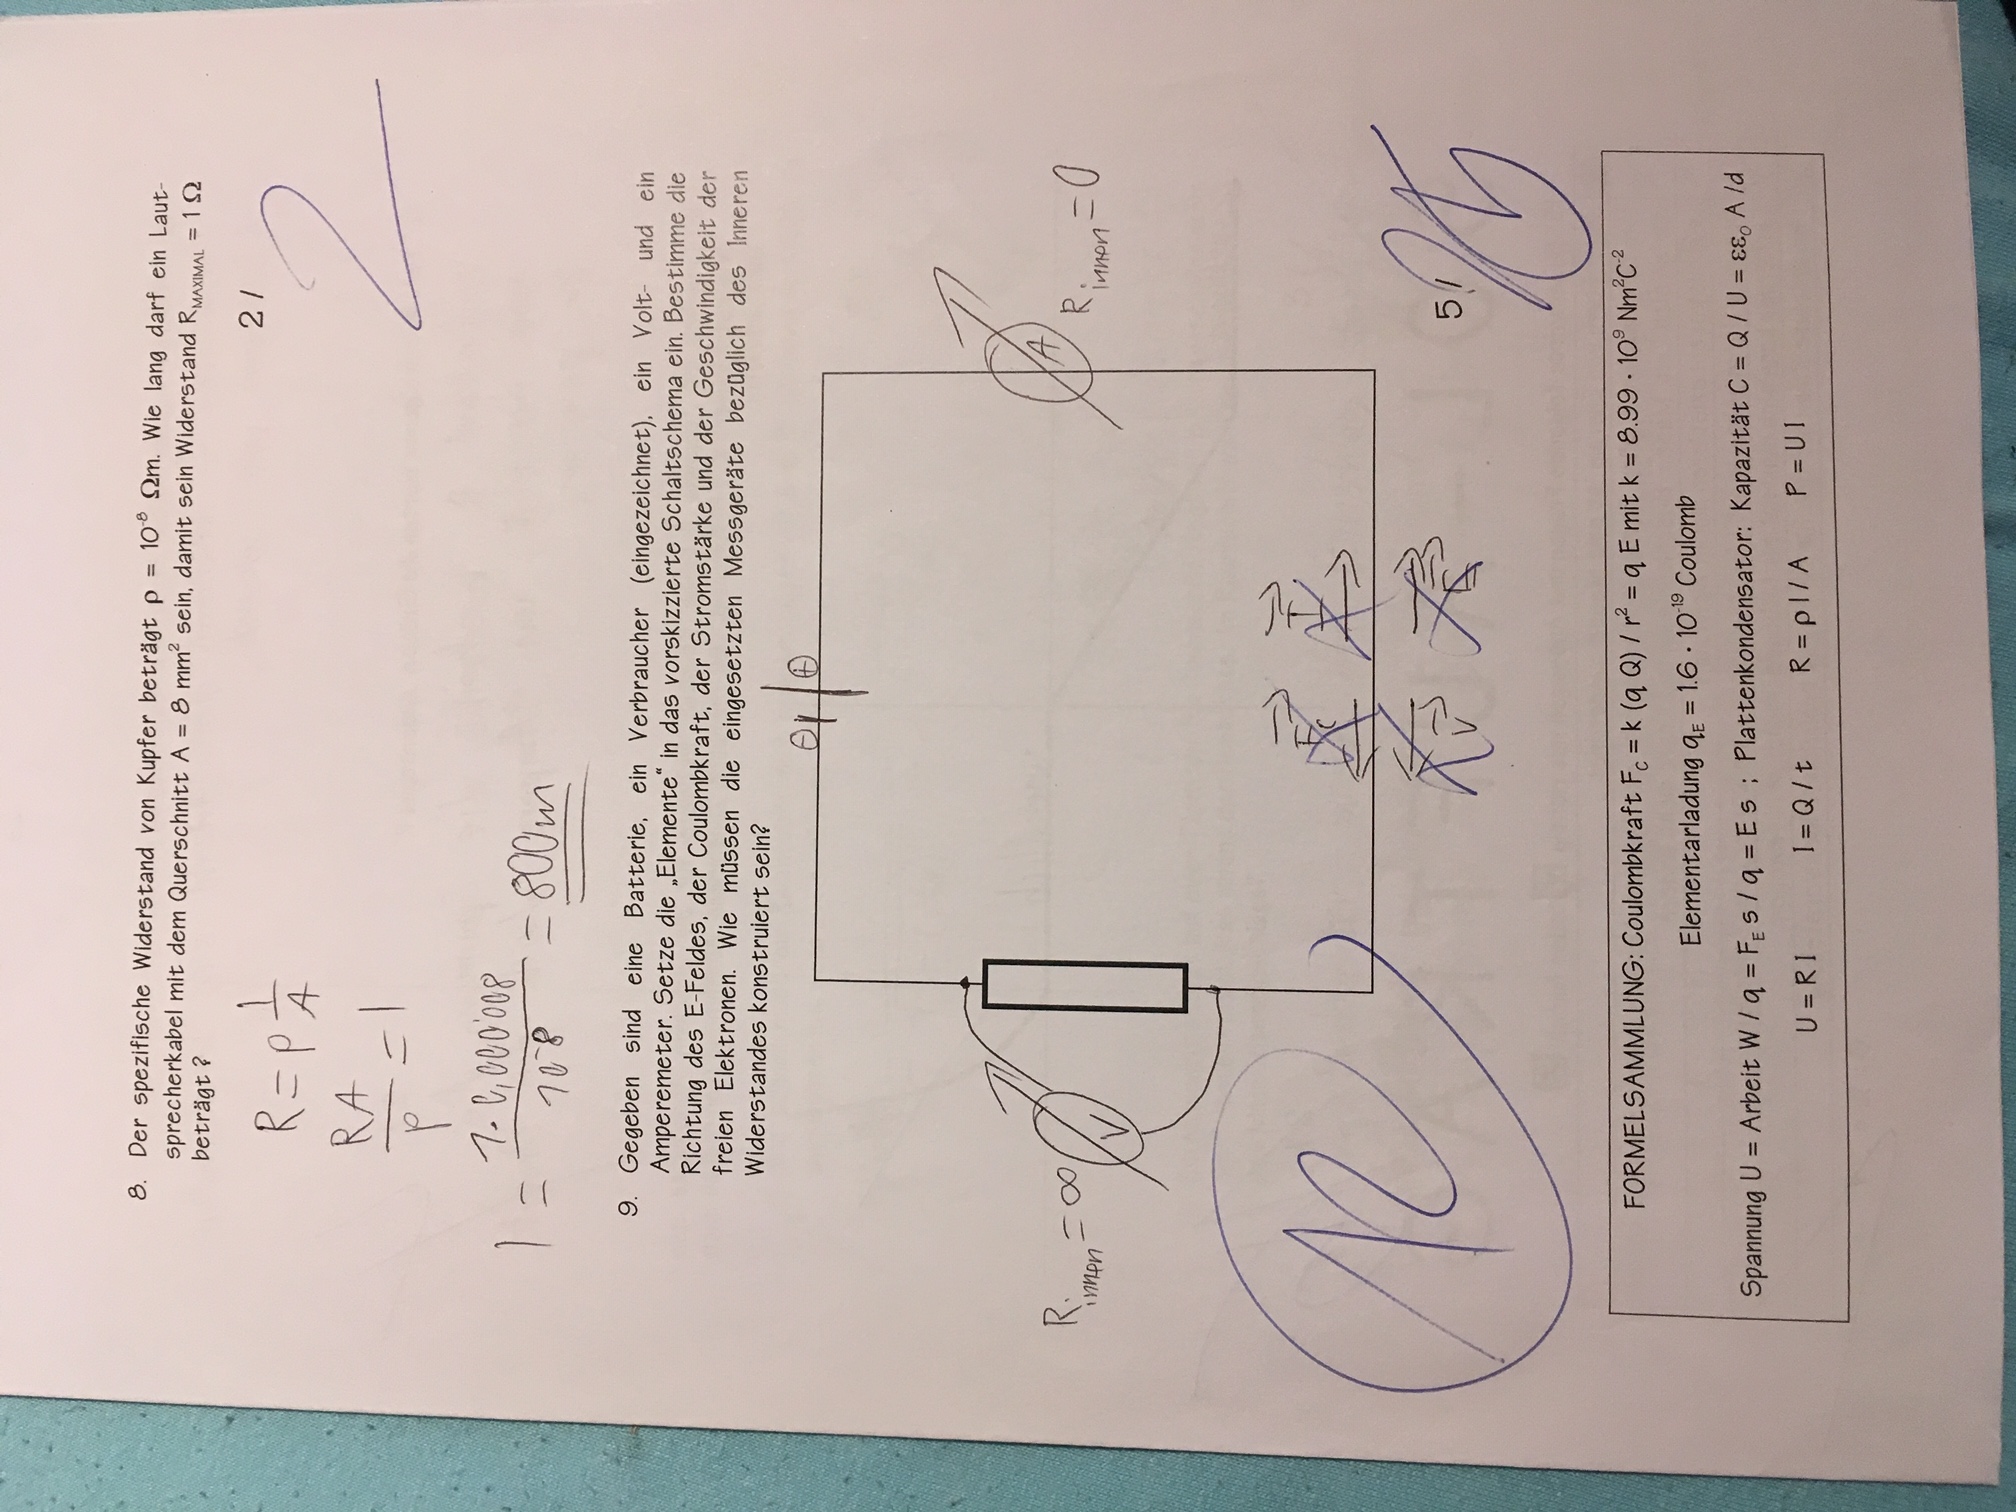 8. Der spezifische Widerstand von Kupfer beträgt ρ = 10⁻⁸ Ωm. Wie lang darf ein Laut-
sprecherkabel mit dem Querschnitt A = 8 mm² sein, damit sein Widerstand R_MAXIMAL = 1 Ω
beträgt ?
2 /
2
R = ρ l/A
RA/ρ = l
l = 1·0,000'008 / 10⁻⁸ = 800m
9. Gegeben sind eine Batterie, ein Verbraucher (eingezeichnet), ein Volt- und ein
Amperemeter. Setze die „Elemente“ in das vorskizzierte Schaltschema ein. Bestimme die
Richtung des E-Feldes, der Coulombkraft, der Stromstärke und der Geschwindigkeit der
freien Elektronen. Wie müssen die eingesetzten Messgeräte bezüglich des Inneren
Widerstandes konstruiert sein?
⊖ ⊕
R_innen = ∞
V
A
R_innen = 0
F_C I
v E
5 /
FORMELSAMMLUNG: Coulombkraft F_C = k (q Q) / r² = q E mit k = 8.99 · 10⁹ Nm²C⁻²
Elementarladung q_E = 1.6 · 10⁻¹⁹ Coulomb
Spannung U = Arbeit W / q = F_E s / q = E s ; Plattenkondensator: Kapazität C = Q / U = εε₀ A /d
U = R I I = Q / t R = ρ l / A P = U I